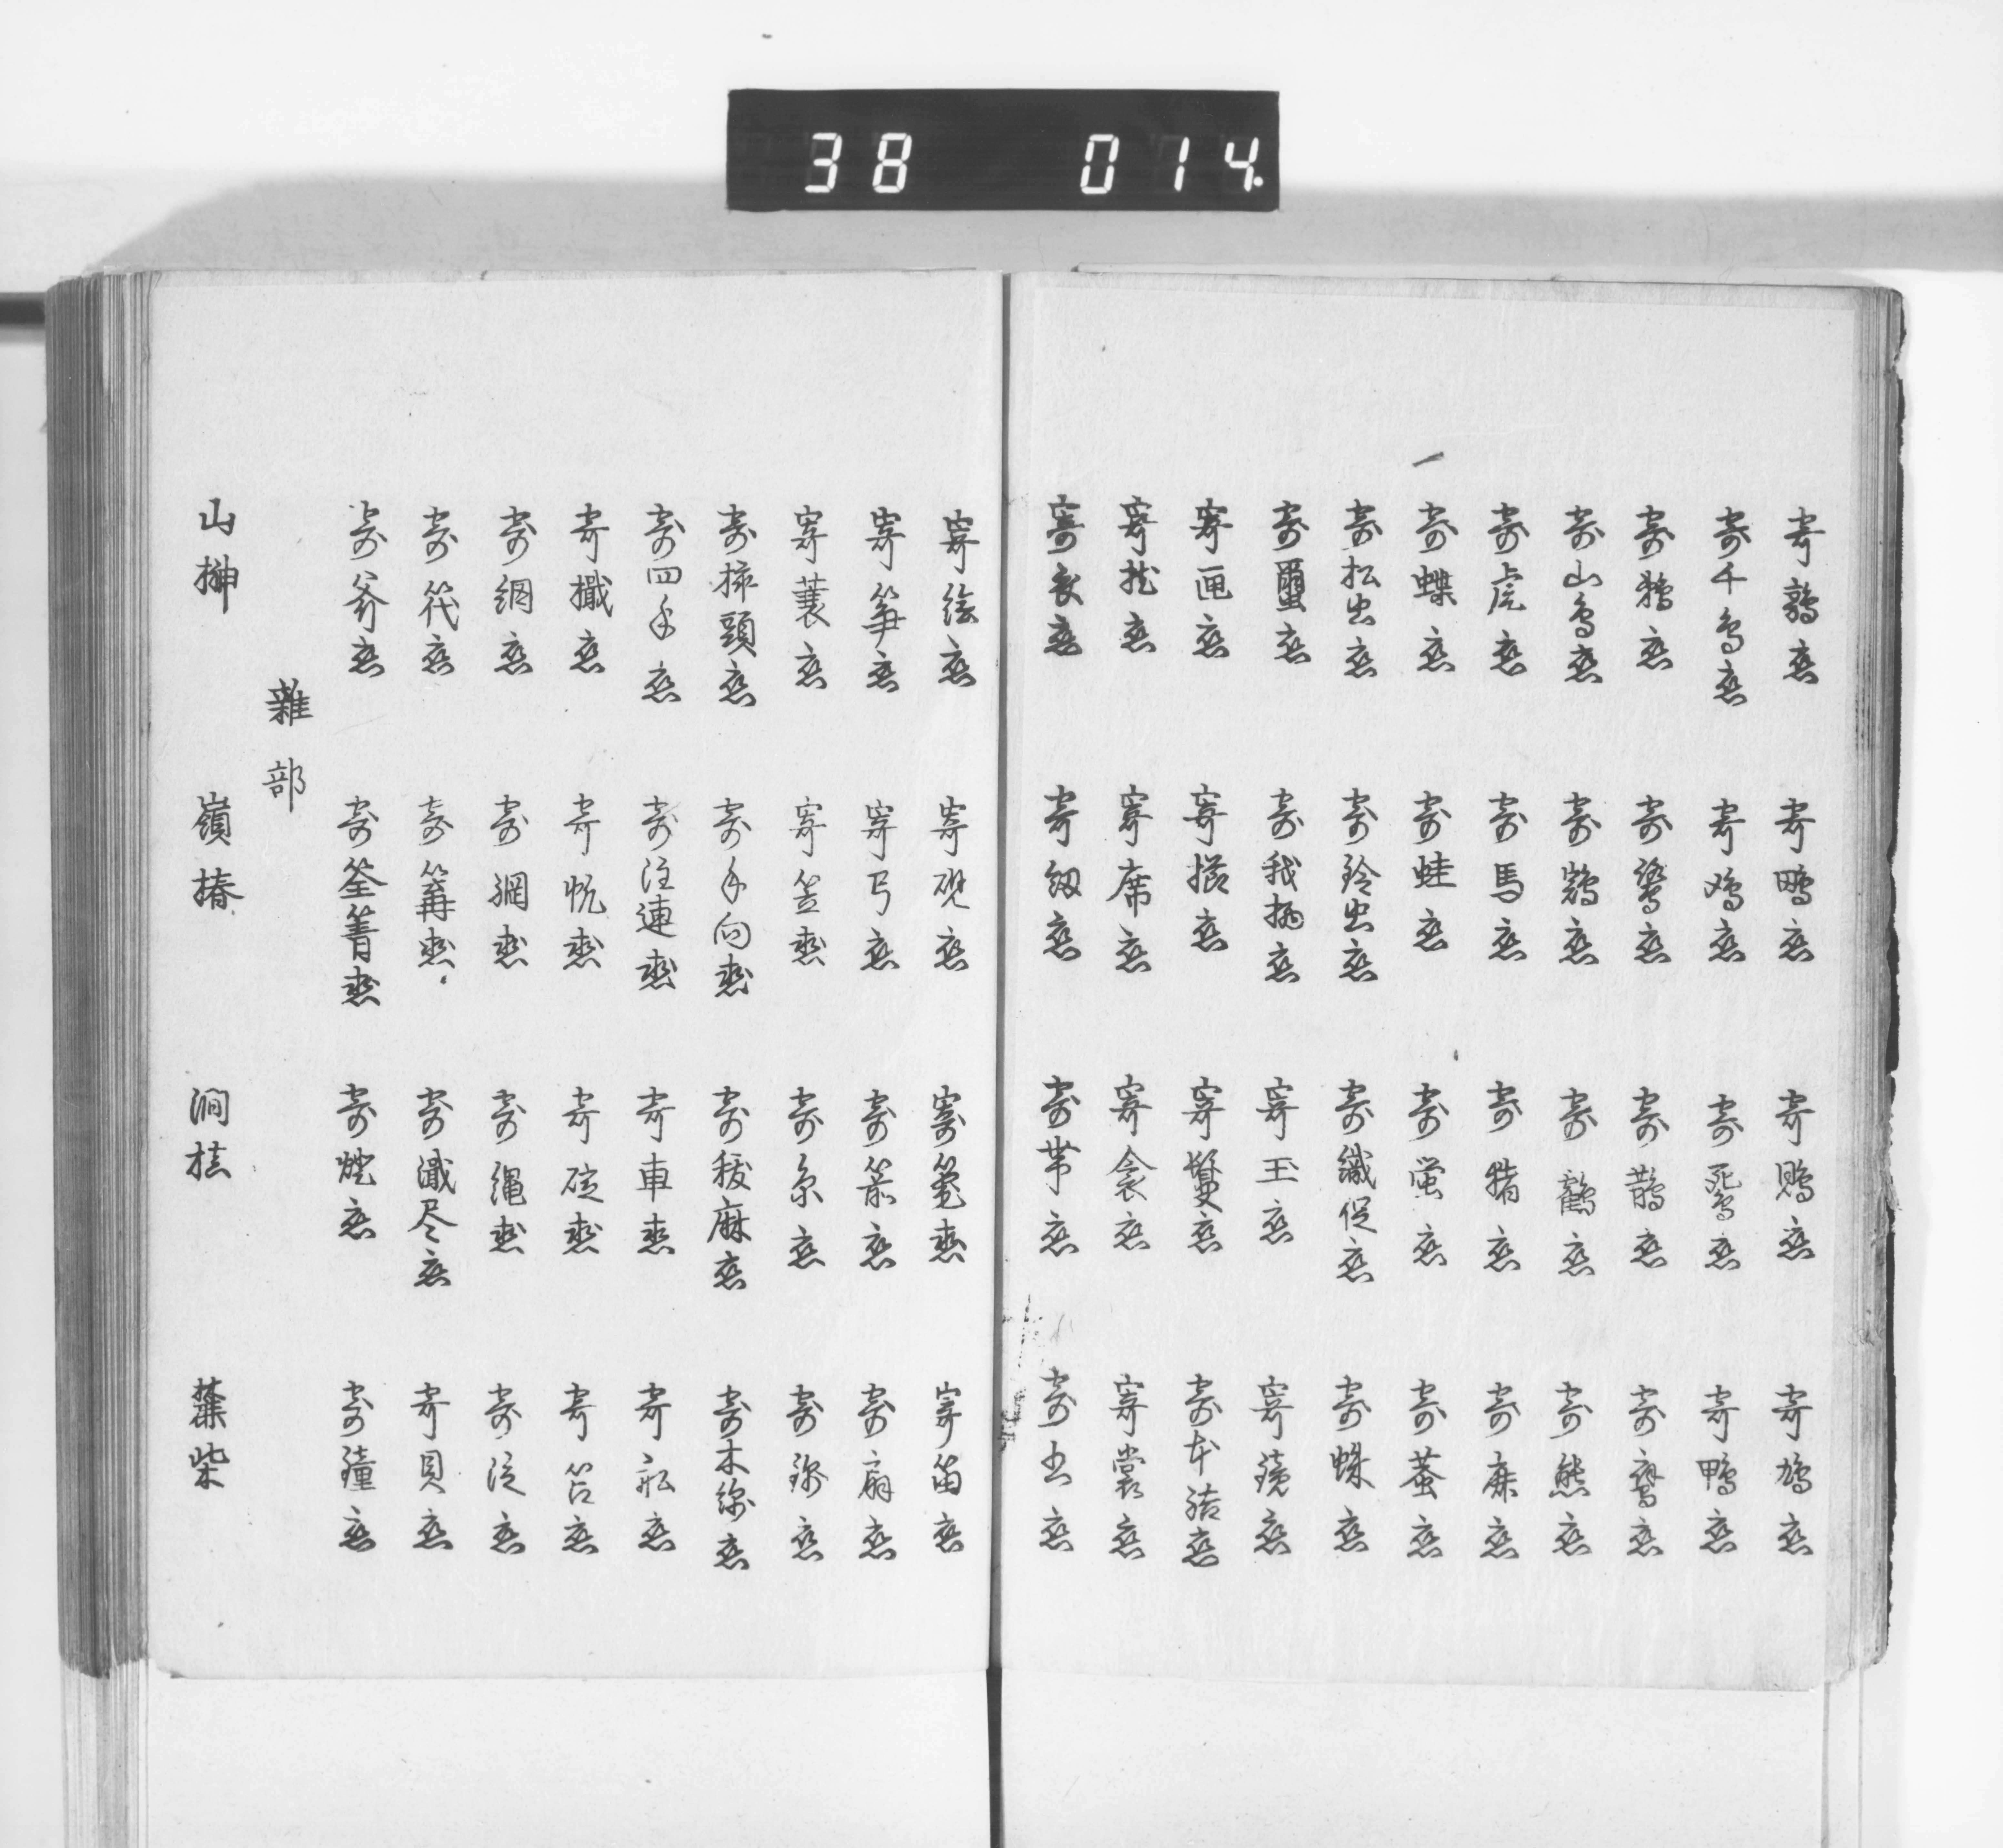 38 014
寄鶉恋 寄鴫恋 寄鵙恋 寄鳩恋
寄千鳥恋 寄鴎恋 寄鴛恋 寄鴨恋
寄鶏恋 寄鷺恋 寄鵲恋 寄鷹恋
寄山鳥恋 寄鵜恋 寄鶴恋 寄熊恋
寄虎恋 寄馬恋 寄猪恋 寄鹿恋
寄蝶恋 寄蛙恋 寄蛍恋 寄蚕恋
寄松虫恋 寄鈴虫恋 寄織促恋 寄蛛恋
寄蠒恋 寄我抛恋 寄玉恋 寄鏡恋
寄匣恋 寄櫛恋 寄鬘恋 寄本結恋
寄枕恋 寄席恋 寄衾恋 寄裳恋
寄衣恋 寄紐恋 寄帯恋 寄書恋
寄絵恋 寄硯恋 寄筆恋 寄笛恋
寄箏恋 寄弓恋 寄箭恋 寄扇恋
寄蓑恋 寄笠恋 寄糸恋 寄綿恋
寄挿頭恋 寄手向恋 寄祓麻恋 寄木綿恋
寄四手恋 寄注連恋 寄車恋 寄舩恋
寄檝恋 寄帆恋 寄碇恋 寄筥恋
寄網恋 寄綱恋 寄縄恋 寄泛恋
寄筏恋 寄篝恋 寄澪尽恋 寄貝恋
寄斧恋 寄筌箐恋 寄燈恋 寄鐘恋
雑部
山榊 嶺椿 澗桂 麓柴